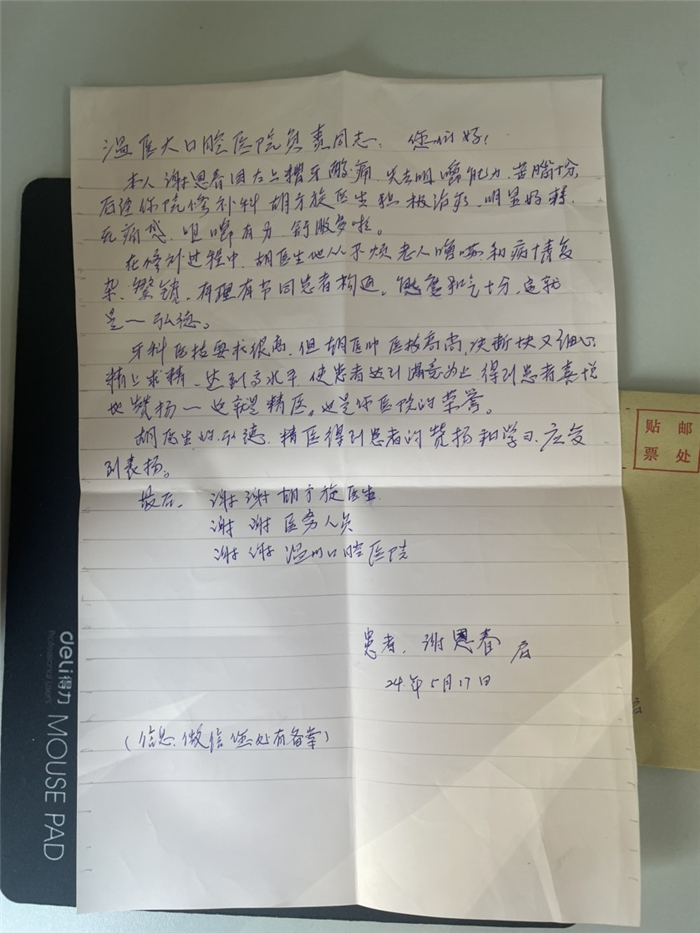 温医大口腔医院负责同志：您们好！
本人谢恩春因右上槽牙酸痛，失去咀嚼能力，苦恼十分，
后经你院修补科胡方旋医生积极治疗，明显好转，
无痛感，咀嚼有力，舒服多啦。
在修补过程中，胡医生他从不烦老人啰嗦和病情复
杂、繁琐，有理有节同患者沟通，态度和气十分，这就
是一弘德。
牙科医技要求很高，但胡医师医技高尚，决断快又细心，
精上求精，达到高水平，使患者达到满意为止，得到患者喜悦
地赞扬一这就是精医。这是你医院的荣誉。
胡医生的弘德、精医得到患者的赞扬和学习，应受
到表扬。
最后，谢谢胡方旋医生
谢谢医务人员
谢谢温州口腔医院
患者：谢恩春启
24年5月17日
（信息、微信您处有备案）
贴 邮
票 处
deli得力
MOUSE PAD